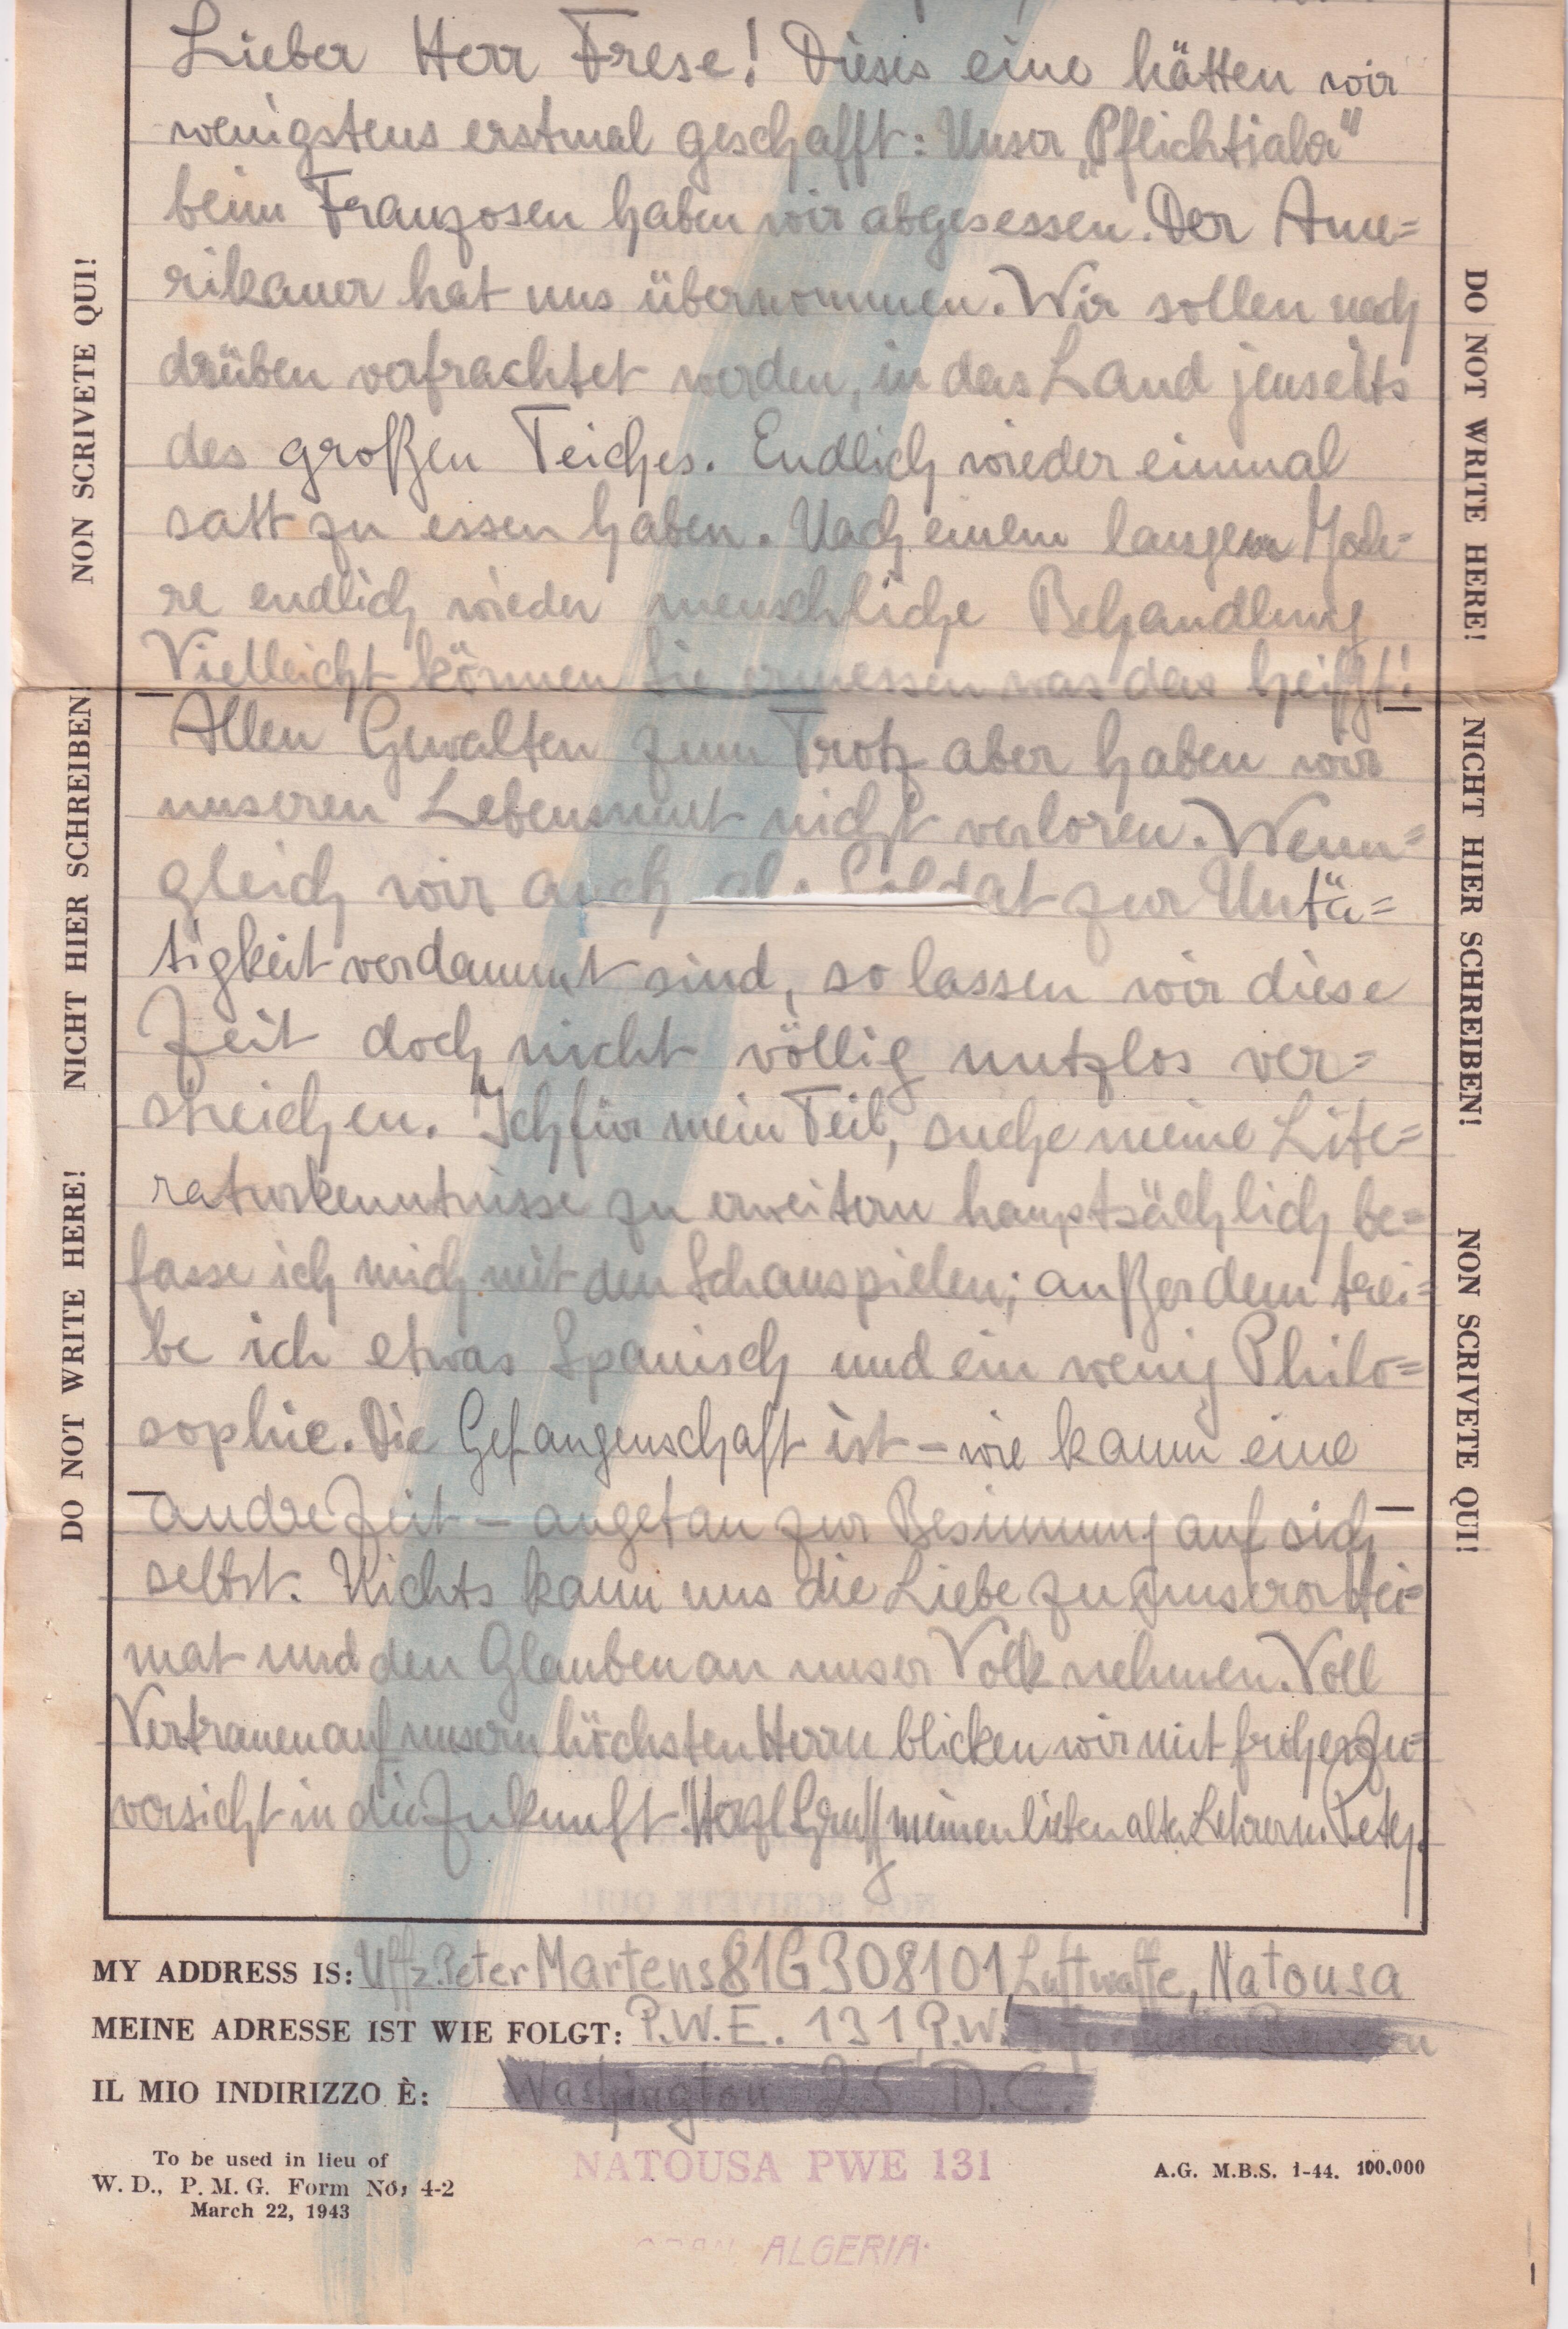 Lieber Herr Frese! Dieses eine hätten wir
wenigstens erstmal geschafft: Unser „Pflichtjahr"
beim Franzosen haben wir abgesessen. Der Ame=
rikaner hat uns übernommen. Wir sollen nach
drüben verfrachtet werden, in das Land jenseits
des großen Teiches. Endlich wieder einmal
satt zu essen haben. Nach einem langen Jah=
re endlich wieder menschliche Behandlung
Vielleicht können Sie ermessen was das heißt!
Allen Gewalten zum Trotz aber haben wir
unseren Lebensmut nicht verloren. Wenn=
gleich wir auch als Soldat zur Untä=
tigkeit verdammt sind, so lassen wir diese
Zeit doch nicht völlig nutzlos ver=
streichen. Ich für mein Teil, suche meine Lite=
raturkenntnisse zu erweitern hauptsächlich be=
fasse ich mich mit den Schauspielen; außerdem trei=
be ich etwas Spanisch und ein wenig Philo=
sophie. Die Gefangenschaft ist – wie kaum eine
andre Zeit – angetan zur Besinnung auf sich
selbst. Nichts kann uns die Liebe zu unserer Hei=
mat und den Glauben an unser Volk nehmen. Voll
Vertrauen auf unsern höchsten Herrn blicken wir mit froher Zu=
versicht in die Zukunft! Herzl. Gruß meinen lieben alten Lehrern. Peter.
MY ADDRESS IS: Uffz. Peter Martens 81G 308101, Luftwaffe, Natousa
MEINE ADRESSE IST WIE FOLGT: P.W.E. 131, P.W.
IL MIO INDIRIZZO È: Washington 25 D.C.
To be used in lieu of
W. D., P. M. G. Form No, 4-2
March 22, 1943
NATOUSA PWE 131
A.G. M.B.S. 1-44. 100.000
ALGERIA.
NON SCRIVETE QUI!
NICHT HIER SCHREIBEN!
DO NOT WRITE HERE!
DO NOT WRITE HERE!
NICHT HIER SCHREIBEN!
NON SCRIVETE QUI!